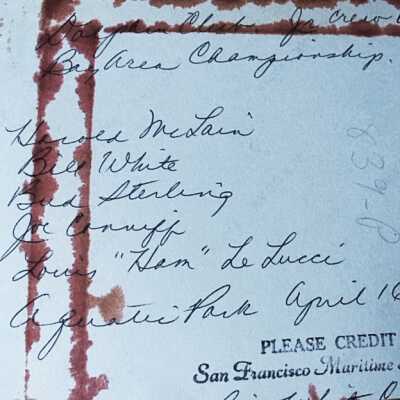 Dolphin Club. Jr crew
Bay Area Championship.
Harold McLain
Bill White
Bud Sterling
Joe Cunniff
Louis "Ham" Le Lucci
Aquatic Park April 16
PLEASE CREDIT
San Francisco Maritime